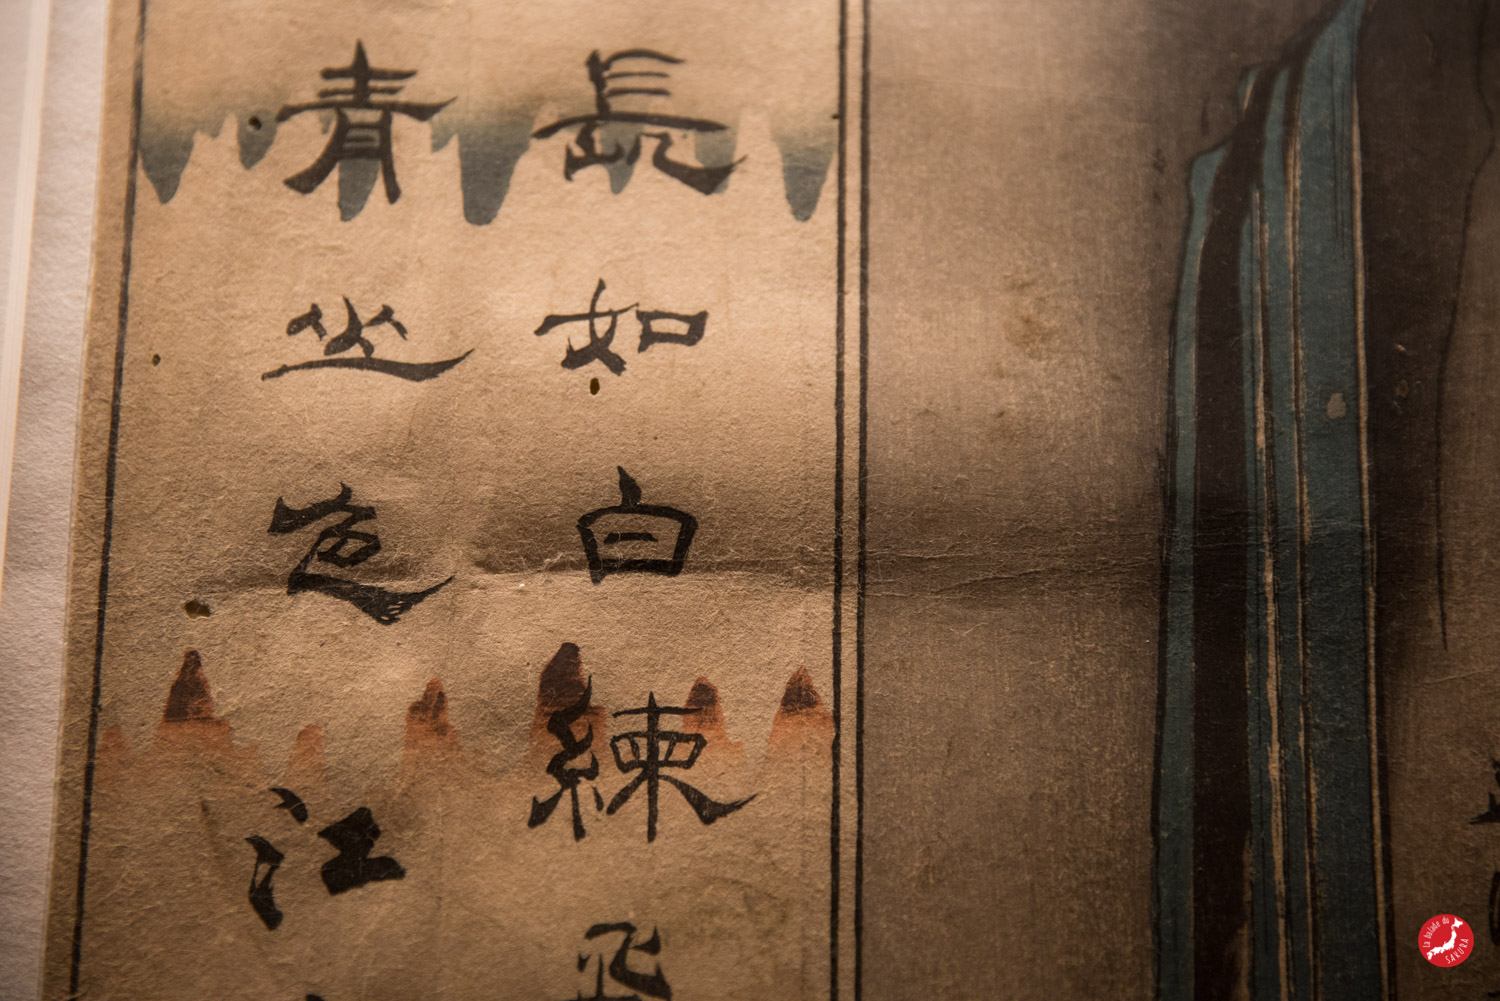 長如白練飛
青山色江
la balade du
SAKURA